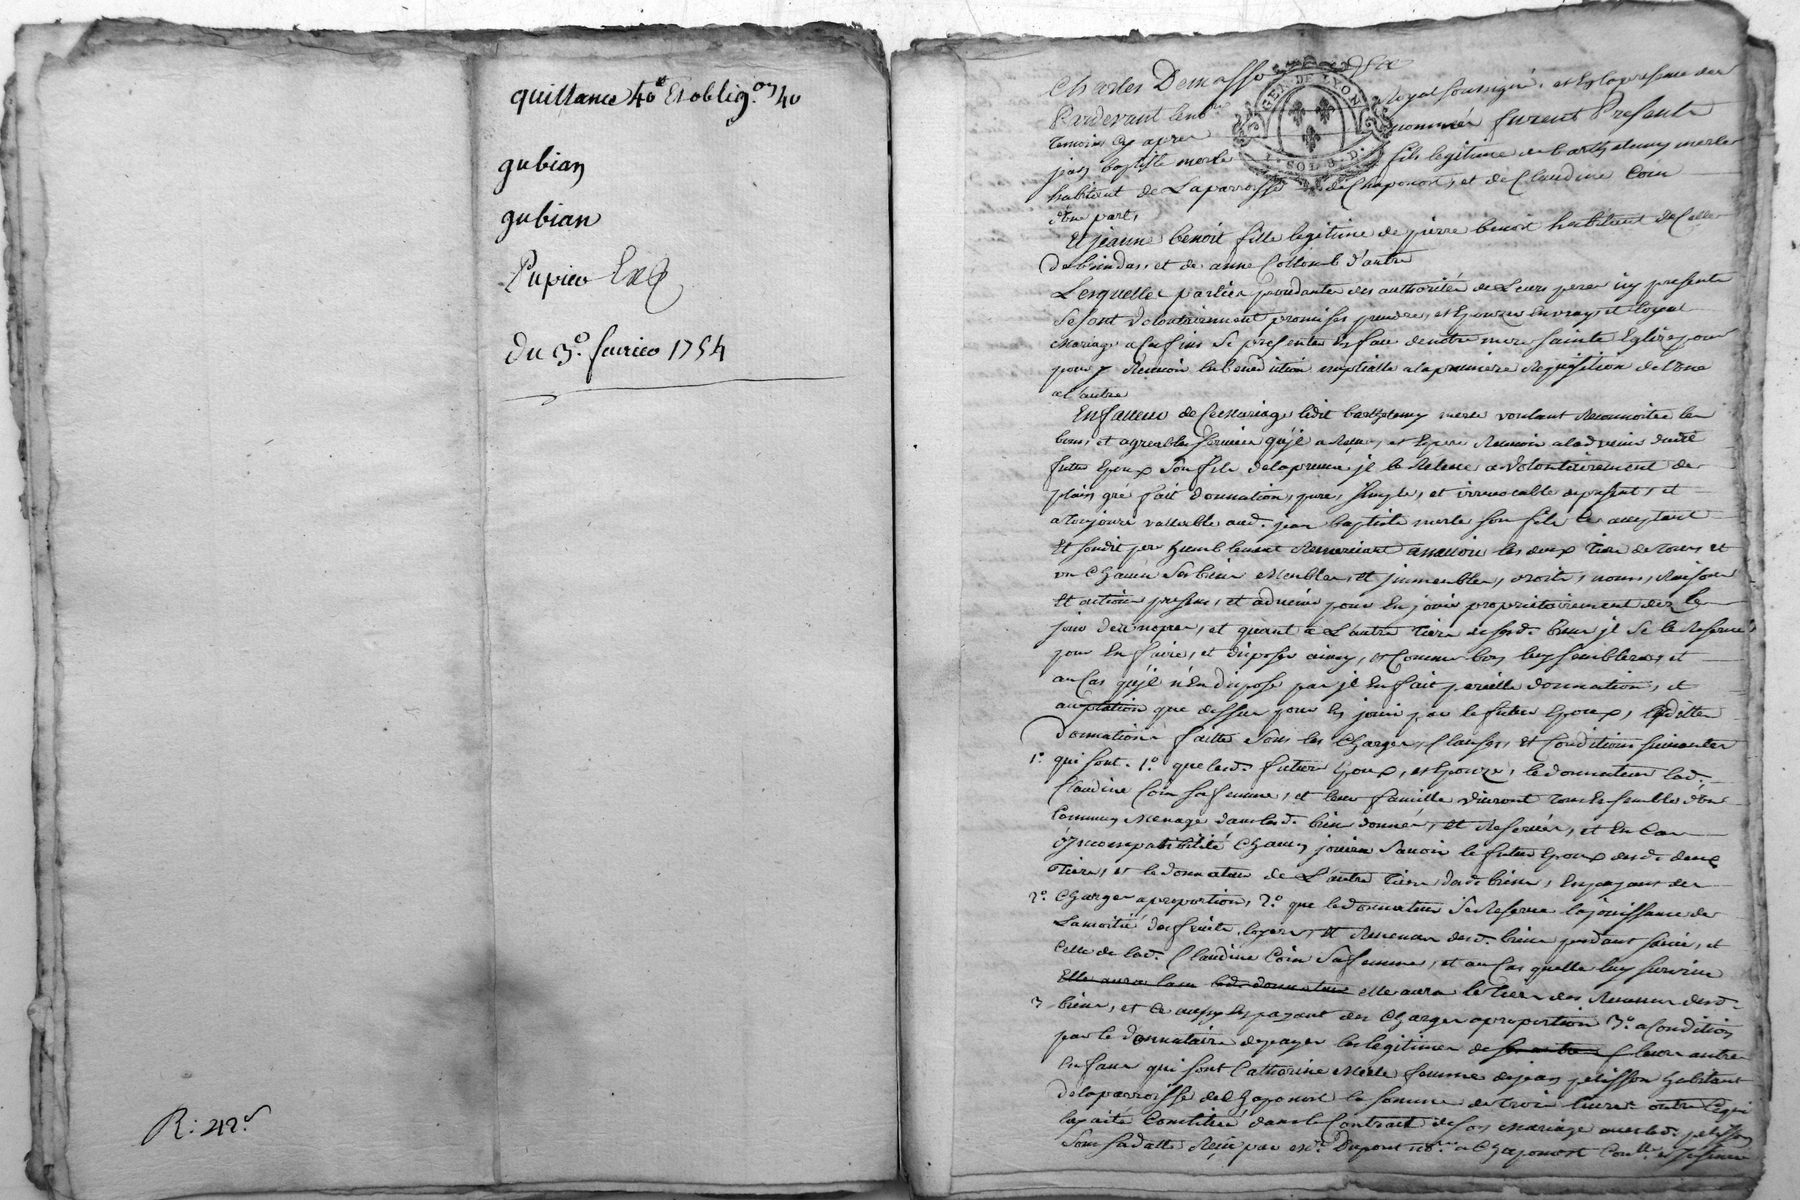 quittance 40# Et oblig.on 40
gubian
gubian
Pupier
du 3.e fevrier 1754
R: 42.s
GEN. DE LYON
SOLS. D.
Charles Demasso
Pardevant le no.re Royal soussigné, et En la presence des
temoins Cy apres nommés furent Presents
jean baptiste merle fils legitime de barthelemy merle
habitant de La parroisse de Chaponost, et de Claudine Coin
d'Une part,
Et jeanne benoit fille legitime de pierre benoit habitant de Celle
de brindas, et de anne Collomb d'autre
Lesquelles parties procedantes des authorités de Leurs peres icy presents
se sont volontairement promises prendre, et Epouzer En vray, et loyal
mariage a Ces fins se presenter En face de notre mere sainte Eglise pour
pour y Recevoir la benediction nuptialle a la premiere Requisition de l'Une
a l'autre
En faveur de Ce mariage ledit barthelemy merle voulant Reconnoitre les
bons, et agreables services qu'jl a Reçus, et Espere Recevoir a l'advenir dudit
futur Epoux son fils de la preuve jl le Releve a volontairement de
plain gré fait donnation, pure, simple, et irrevocable a present, et
a toujours vallable aud. jean baptiste merle son fils Ce acceptant
Et sondit pere humblement Remerciant assavoir les deux tiers de tous et
un Chacun ses biens meubles, et jmmeubles, droits, noms, Raisons
Et actions presens, et advenir pour En jouir proprietairement des le
jour des nopces, et quant a L'autre tiers desd. biens jl Se le Reserve
pour En faire, et disposer ainsy, et Comme bon luy semblera, et
au Cas qu'jl n'En dispose pas jl En fait pareille donnation, et
acceptation que dessus pour En jouir par le futur Epoux, Laditte
donnation faitte sous les Charges, Clauses, Et Conditions suivantes
1.o qui sont. 1.o que lesd. futurs Epoux, et Epouze, le donnateur lad.
Claudine Coin sa femme, et leur famille vivront tous Ensemble d'Un
Commun menage dans lesd. biens donnés, Et Reservés, et En Cas
d'jncompatibilité Chacun jouira Savoir le futur Epoux desd. deux
tiers, et le donnateur de L'autre tiers desd. biens, En payant les
2.o Charges a proportion, 2.o que le donnateur se Reserve la jouissance de
La moitié des fruits, loyers, Et Revenus desd. biens pendant sa vie, et
Celle de lad. Claudine Coin Sa femme, et au Cas quelle luy survive
elle aura le tiers des Revenus desd.
3 biens, et Ce aussy En payant des Charges a proportion 3.o a Condition
par le donnataire de payer les legitimes de leurs autres
Enfans qui sont Catherine Merle femme de jean pelisson habitant
de la parroisse de Chaponost la somme de trois livres outre Ce qui
luy a eté Constitué dans le Contrait de son mariage avec led. pelisson
Sous sa datte Reçu par M.e Dupont no.re a Chaponost